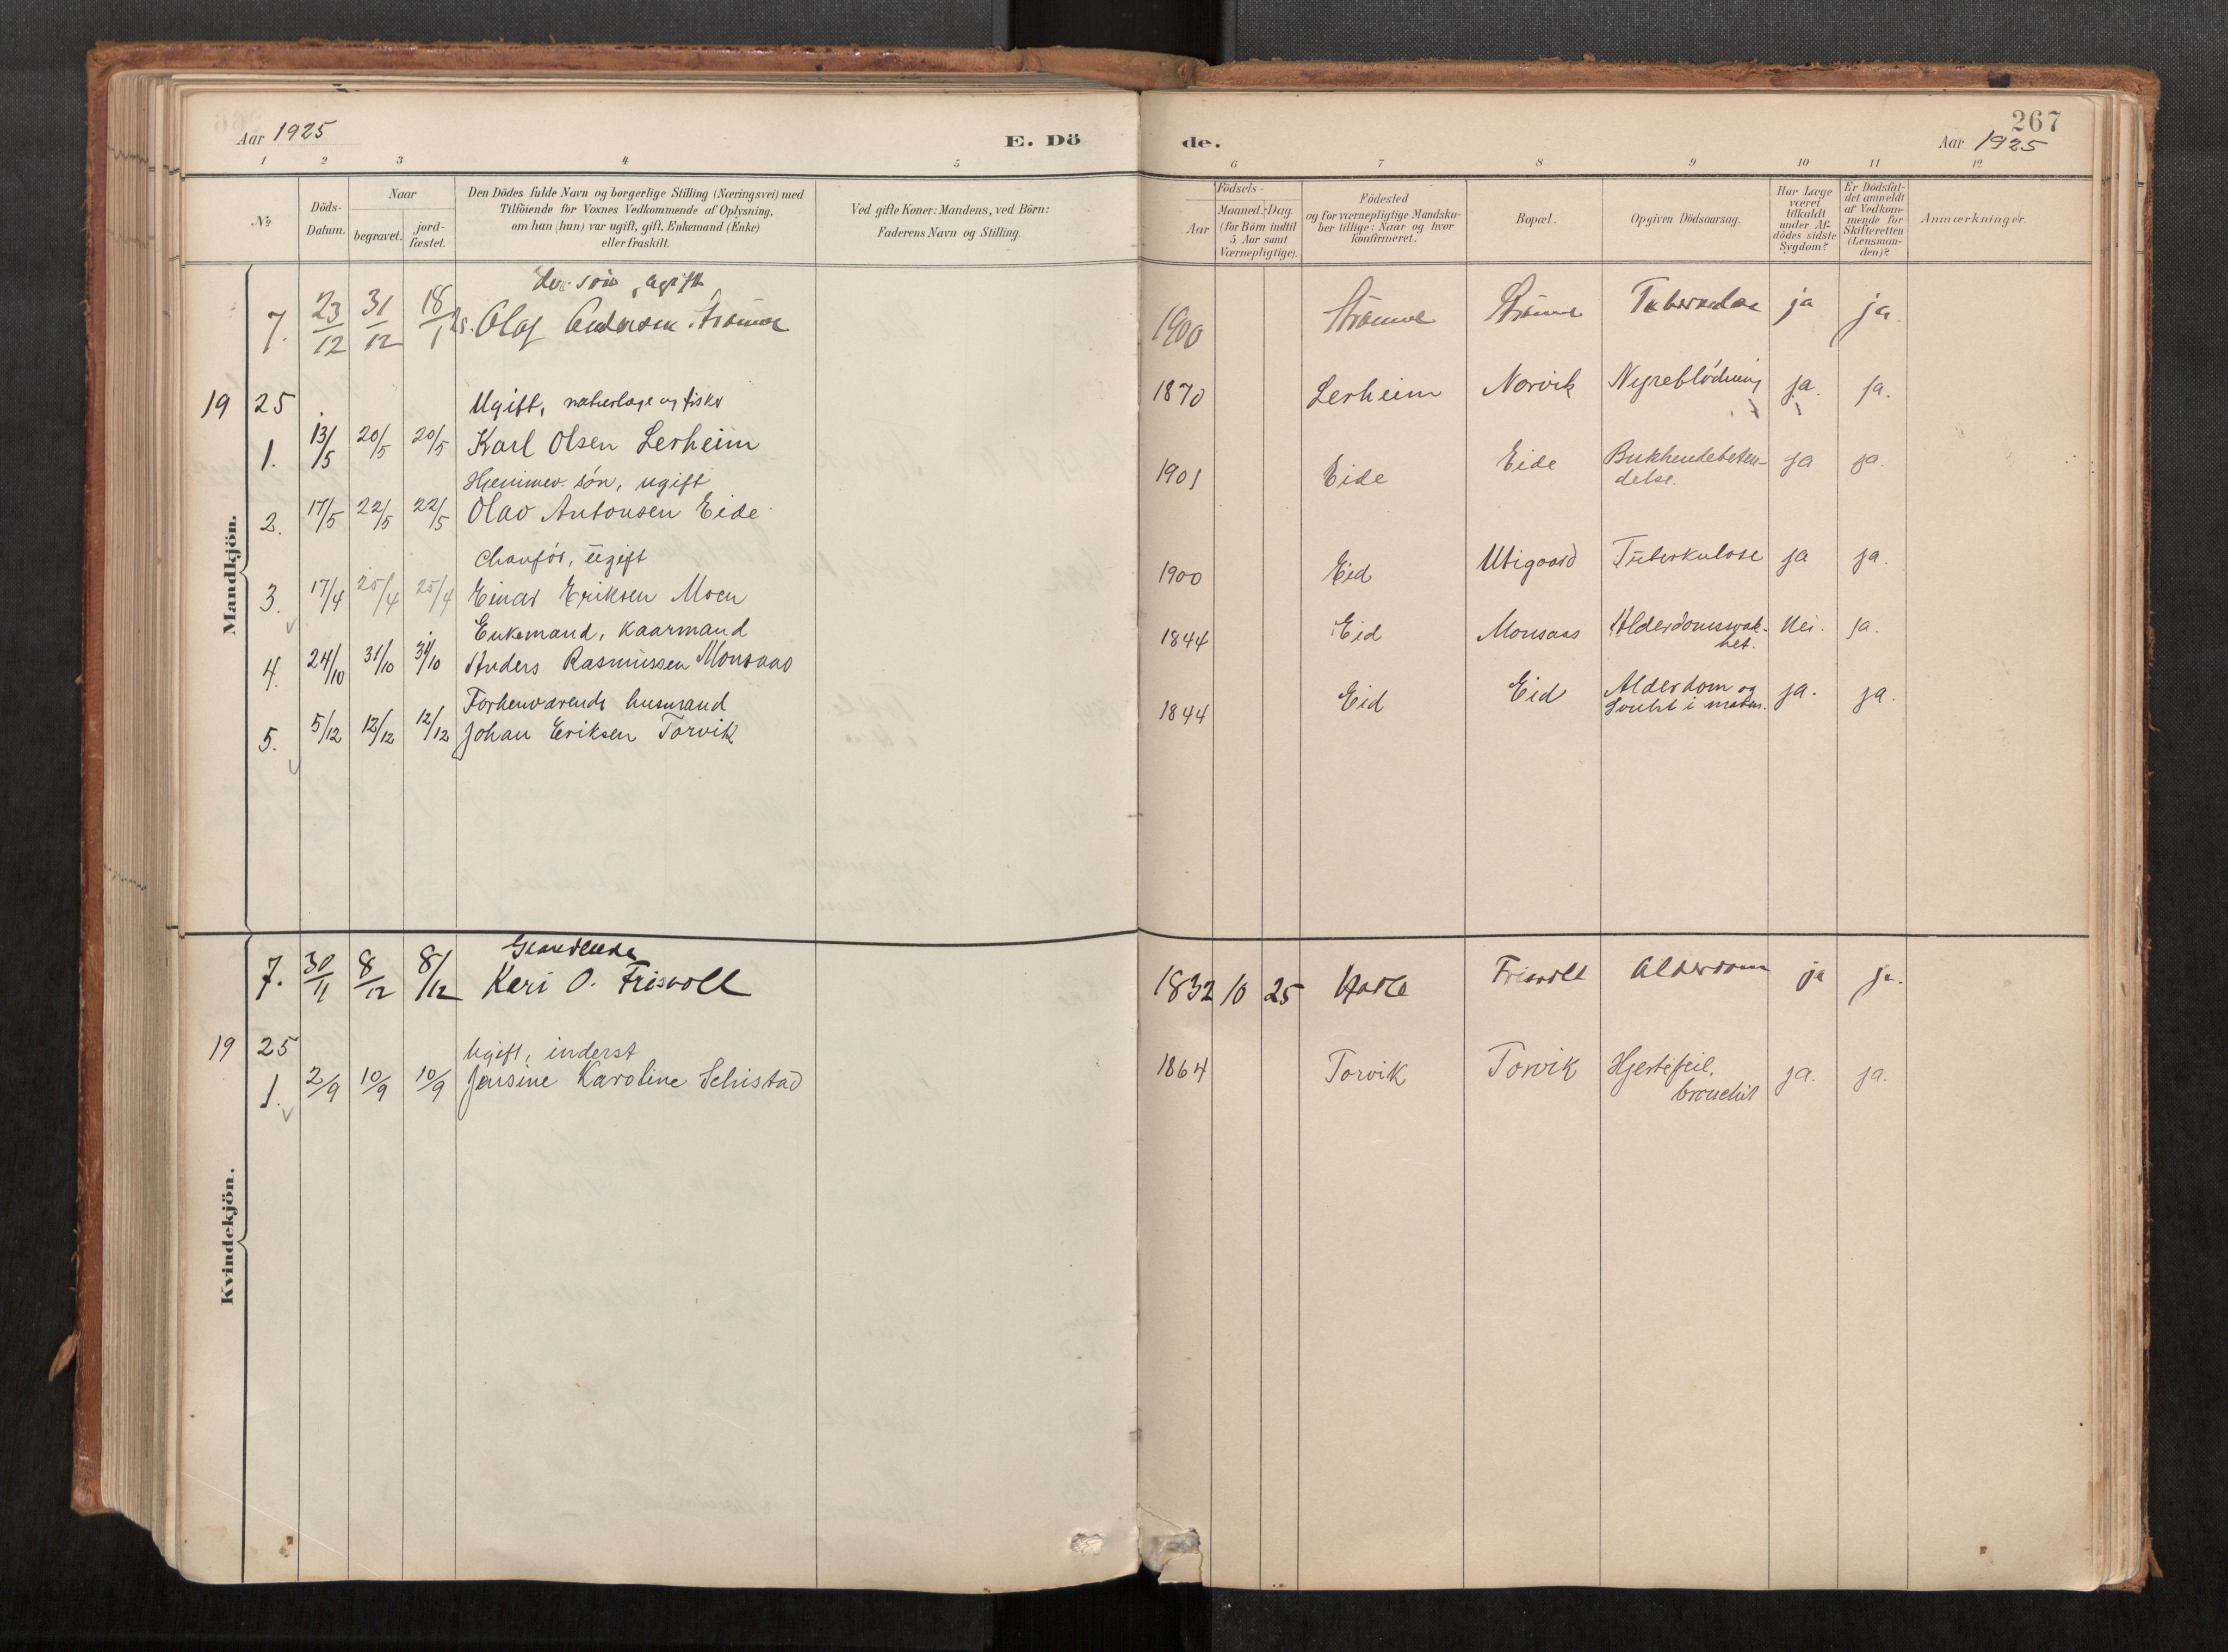 Aar 1925
E. Dö
de.
267
Aar 1925
1 2 3 4 5 6 7 8 9 10 11 12
No
Döds-Datum.
Naar
begravet.
jord-fæstet.
Den Dödes fulde Navn og borgerlige Stilling (Næringsvei) med
Tilföiende for Voxnes Vedkommende af Oplysning,
om han (hun) var ugift, gift, Enkemand (Enke)
eller fraskilt.
Ved gifte Koner: Mandens, ved Börn:
Faderens Navn og Stilling.
Födsels-
Aar
Maaned. Dag
(for Börn indtil
5 Aar samt
Værnepligtige).
Födested
og for værnepligtige Mandska-
ber tillige: Naar og hvor
konfirmeret.
Bopæl.
Opgiven Dödsaarsag.
Har Læge
været
tilkaldt
under Af-
dödes sidste
Sygdom?
Er Dödsfal-
det anmeldt
af Vedkom-
mende for
Skifteretten
(Lensman-
den)?
Anmærkninger.
Mandkjön.
søn, ugift
7. 23/12 31/12 18/1 25. Olaf Andersen Strömme 1900 Strömme Strömme Tuberkulose ja ja.
19 25
Ugift, og fisker
1. 13/5 20/5 20/5 Karl Olsen Lerheim 1870 Lerheim Norvik Nyreblödning ja. ja.
Hjemmev. sön, ugift
2. 17/5 22/5 22/5 Olav Antonsen Eide 1901 Eide Eide Bukhindebeten-
delse. ja ja.
Chauför, ugift
3. 17/4 25/4 25/4 Einar Eriksen Moen 1900 Eid Utigaard Tuberkulose ja ja.
Enkemand, kaarmand
4. 24/10 31/10 31/10 Anders Rasmussen Monsaas 1844 Eid Monsaas Alderdomssvak-
het. Nei. ja.
Forhenværende husmand
5. 5/12 12/12 12/12 Johan Eriksen Torvik 1844 Eid Eid Alderdom og
i ja. ja.
Kvindekjön.
7. 30/11 8/12 8/12 Kari O. Frisvoll 1832 10 25 Frisvoll Alderdom ja ja.
19 25
Ugift, inderst
1. 2/9 10/9 10/9 Jensine Karoline Schistad 1864 Torvik Torvik Hjertefeil,
bronchit ja. ja.